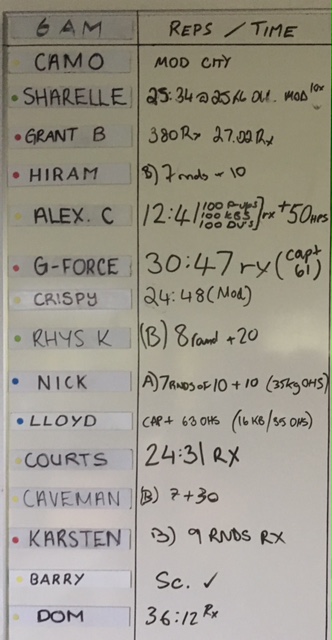 6 AM REPS / TIME
CAMO MOD CITY
SHARELLE 25:34 @ 25 MOD 10x
GRANT B 380 Rx 27.02 Rx
HIRAM B) 7 rnds + 10
ALEX. C 12:41 100 100 KBS 100 DU'S rx +50 HPS
G-FORCE 30:47 rx (capt 61)
CRISPY 24:48 (Mod)
RHYS K (B) 8 round +20
NICK A) 7 RNDS OF 10 + 10 (35kg OHS)
LLOYD CAP + 63 OHS (16 KB/35 OHS)
COURTS 24:31 RX
CAVEMAN (B) 7+30
KARSTEN B) 9 RNDS RX
BARRY Sc. ✓
DOM 36:12 Rx